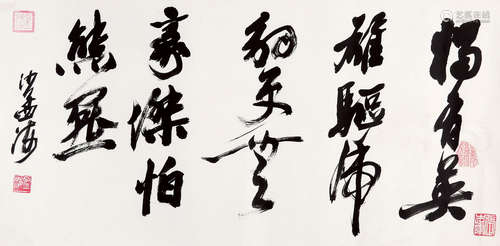 獨有英
雄驅虎
豹更無
豪傑怕
熊羆
沙孟海